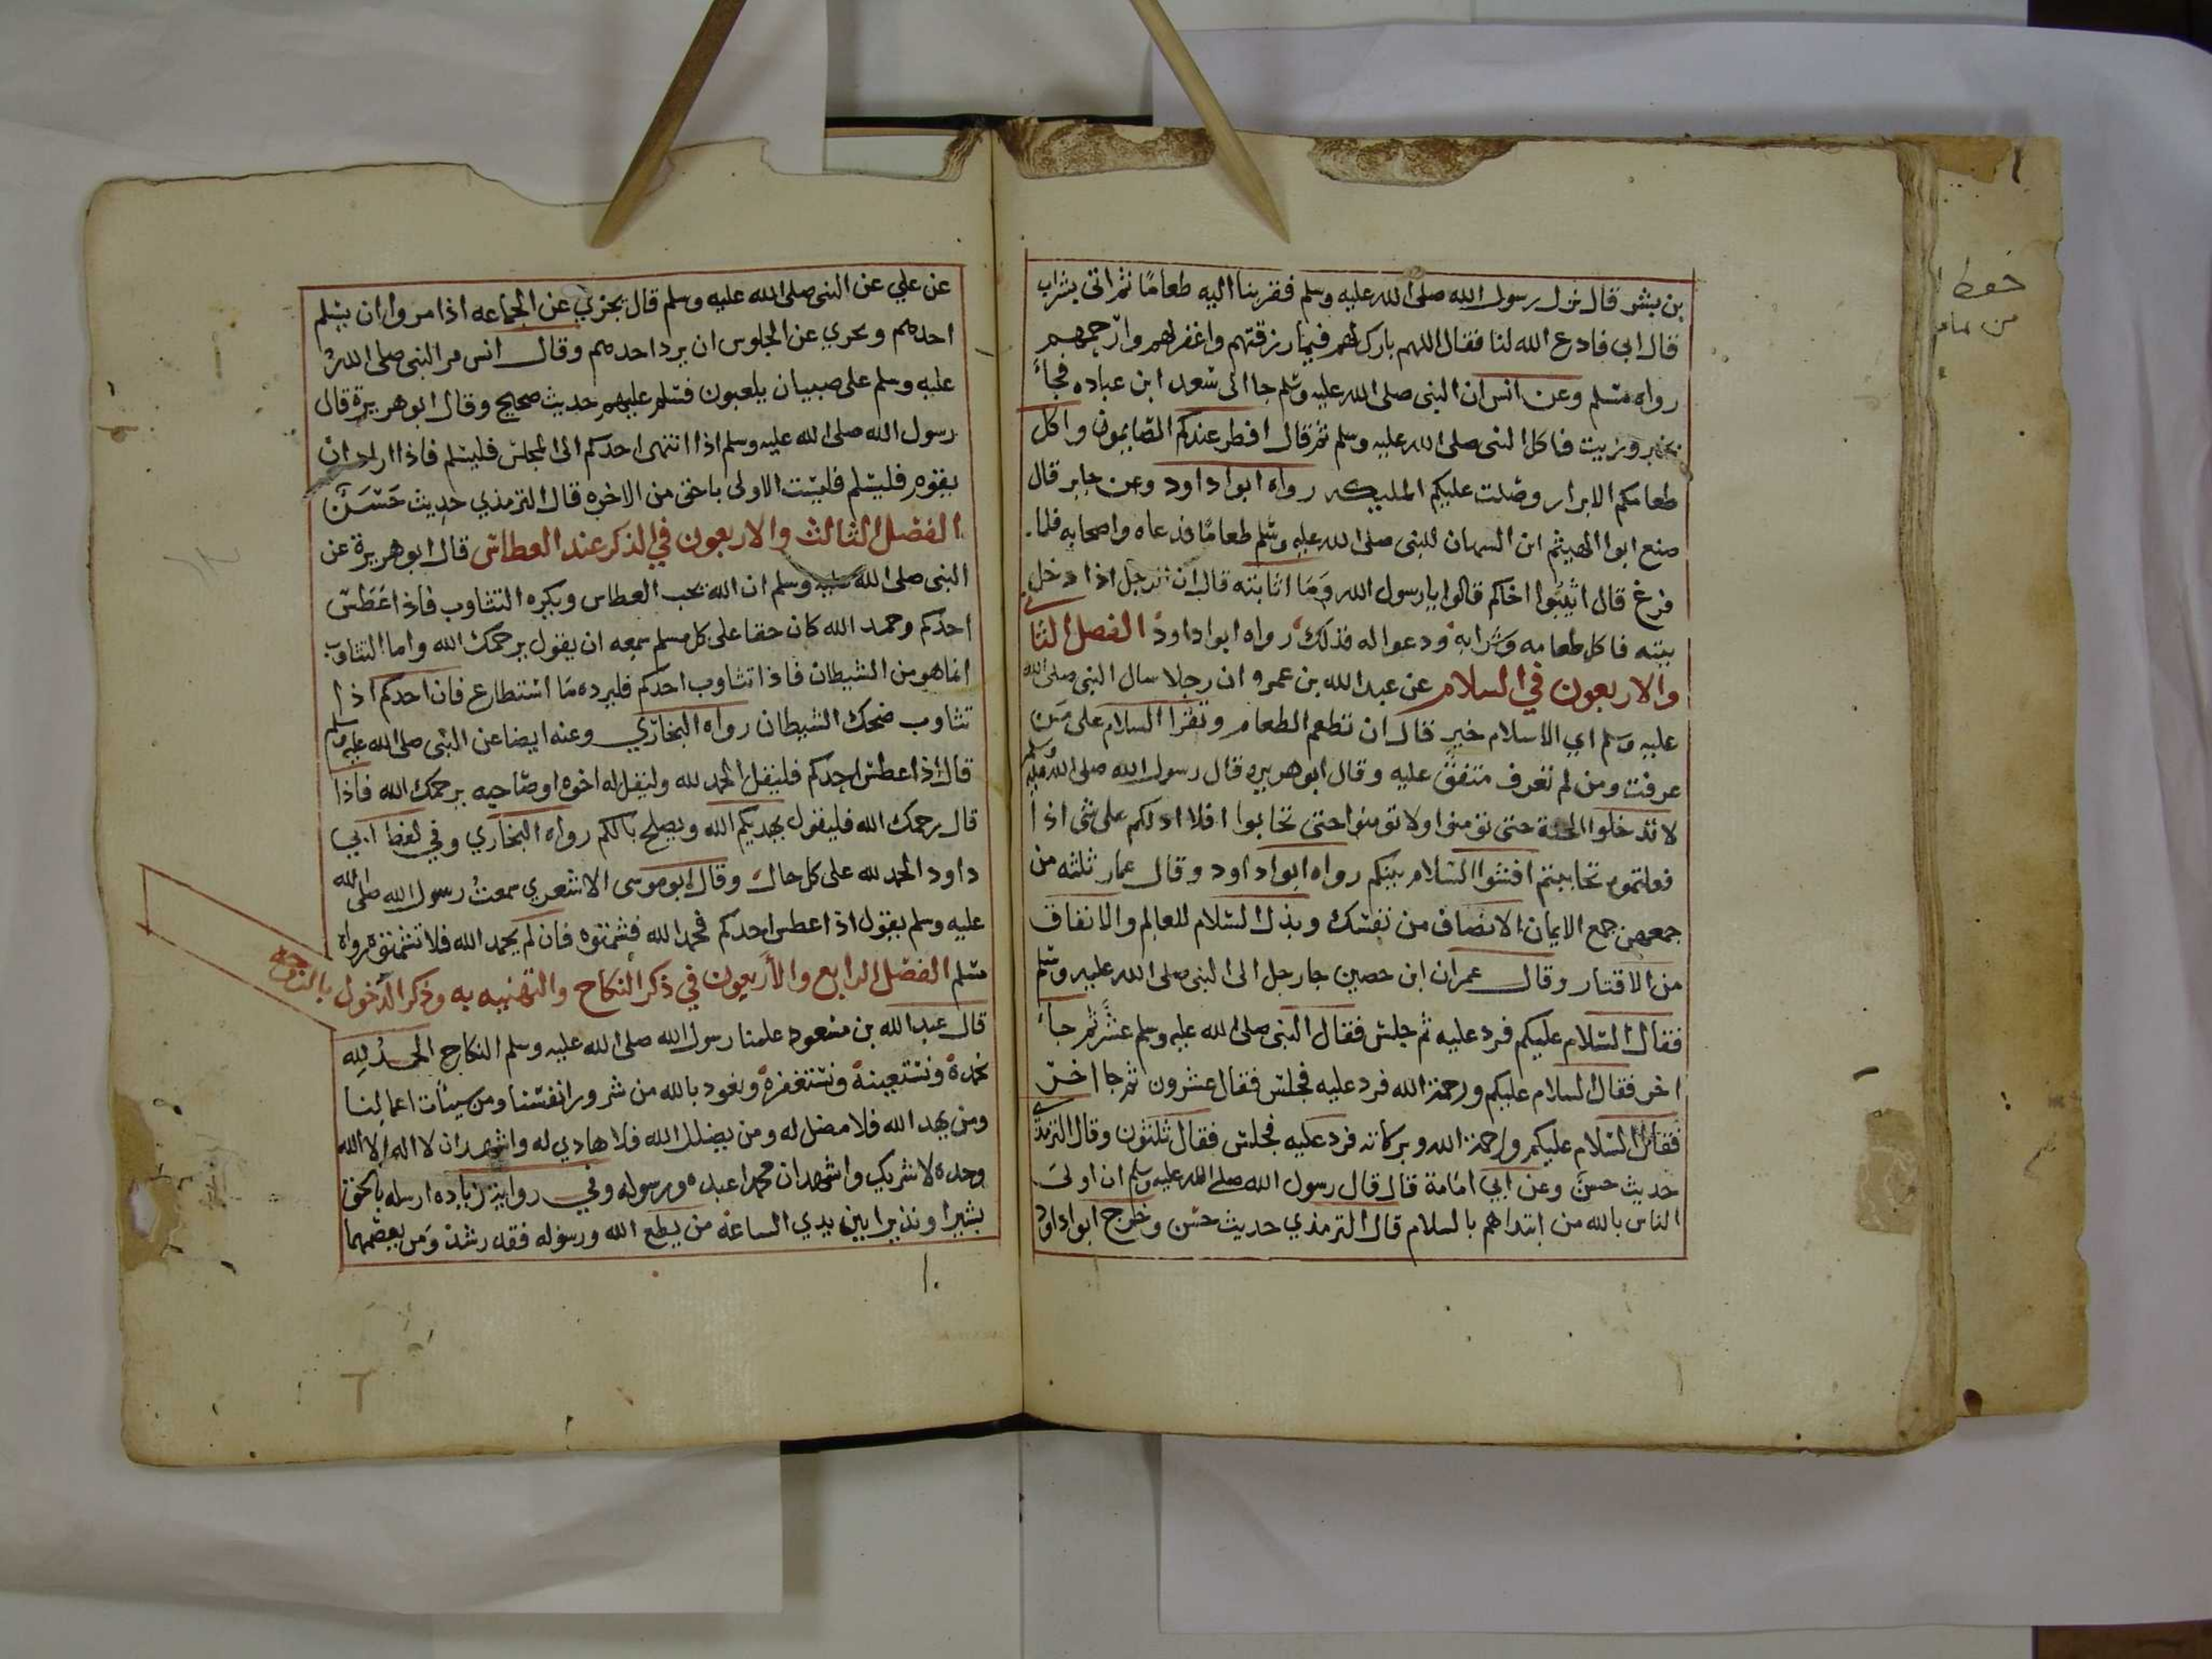 بن بشر قال نزل رسول الله صلى الله عليه وسلم فقربنا اليه طعامًا ثم اتى بشراب
قال ابي فادع الله لنا فقال اللهم بارك لهم فيما رزقتهم واغفر لهم وارحمهم
رواه مسلم وعن انس ان النبى صلى الله عليه وسلم جا الى سعد ابن عباده فجاء
بخبز وزيت فاكل النبى صلى الله عليه وسلم ثم قال افطر عندكم الصايمون واكل
طعامكم الابرار وصلت عليكم المليكه رواه ابوا داود وعن جابر قال
صنع ابوا الهيثم ابن التيهان للنبى صلى الله عليه وسلم طعامًا فدعاه واصحابه فلما
فرغ قال اثيبوا اخاكم قالوا يا رسول الله وما اثابته قال ان الرجل اذا دخل
بيته فاكل طعامه وشرابه ودعوا له فذلك رواه ابوا داود الفصل الثا
والاربعون في السلام عن عبد الله بن عمرو ان رجلا سال النبى صلى الله
عليه وسلم اي الاسلام خير قال ان تطعم الطعام وتقرا السلام على من
عرفت ومن لم تعرف متفق عليه وقال ابو هريره قال رسول الله صلى الله عليه وسلم
لا تدخلوا الجنة حتى تومنوا ولا تومنوا حتى تحابوا افلا ادلكم على شى اذا
فعلتموه تحاببتم افشوا السلام بينكم رواه ابوا داود وقال عمار ثلثه من
جمعهن جمع الايمان الانصاف من نفسك وبذل السلام للعالم والانفاق
من الاقتار وقال عمران ابن حصين جا رجل الى النبى صلى الله عليه وسلم
فقال السلام عليكم فرد عليه ثم جلس فقال النبى صلى الله عليه وسلم عشر ثم جاء
اخر فقال السلام عليكم ورحمة الله فرد عليه فجلس فقال عشرون ثم جا اخر
فقال السلام عليكم ورحمة الله وبركاته فرد عليه فجلس فقال ثلثون وقال الترمذ
حديث حسن وعن ابي امامة قال قال رسول الله صلى الله عليه وسلم ان اولى
الناس بالله من ابتداهم بالسلام قال الترمذي حديث حسن وخرج ابوا داود
عن علي عن النبى صلى الله عليه وسلم قال يجزي عن الجماعه اذا مروا ان يسلم
احدهم ويجزي عن الجلوس ان يرد احدهم وقال انس مر النبى صلى الله
عليه وسلم على صبيان يلعبون فسلم عليهم حديث صحيح وقال ابو هريرة قال
رسول الله صلى الله عليه وسلم اذا انتهى احدكم الى المجلس فليسلم فاذا اراد ان
يقوم فليسلم فليست الاولى باحق من الاخره قال الترمذي حديث حسن
الفصل الثالث والاربعون في الذكر عند العطاس قال ابو هريرة عن
النبى صلى الله عليه وسلم ان الله يحب العطاس ويكره التثاوب فاذا عطس
احدكم وحمد الله كان حقا على كل مسلم سمعه ان يقول يرحمك الله واما التثاوب
انما هو من الشيطان فاذا تثاوب احدكم فليرده ما استطاع فان احدكم اذا
تثاوب ضحك الشيطان رواه البخاري وعنه ايضا عن النبى صلى الله عليه وسلم
قال اذا عطس احدكم فليقل الحمد لله وليقل له اخوه او صاحبه يرحمك الله فاذا
قال يرحمك الله فليقول يهديكم الله ويصلح بالكم رواه البخاري وفي لفظ ابي
داود الحمد لله على كل حال وقال ابو موسى الاشعري سمعت رسول الله صلى الله
عليه وسلم يقول اذا عطس احدكم فحمد الله فشمتوه فان لم يحمد الله فلا تشمتوه رواه
مسلم الفصل الرابع والأربعون في ذكر النكاح والتهنيه به وذكر الدخول بالزوجه
قال عبد الله بن مسعود علمنا رسول الله صلى الله عليه وسلم النكاح الحمد لله
نحمدة ونستعينة ونستغفرة ونعود بالله من شرور انفسنا ومن سيئات اعمالنا
ومن يهد الله فلا مضل له ومن يضلل الله فلا هادي له واشهد ان لا اله الا الله
وحده لا شريك واشهد ان محمدا عبده ورسوله وفي رواية زياده ارسله بالحق
بشيرا ونذيرا بين يدي الساعة من يطع الله ورسوله فقد رشد ومن يعصهما